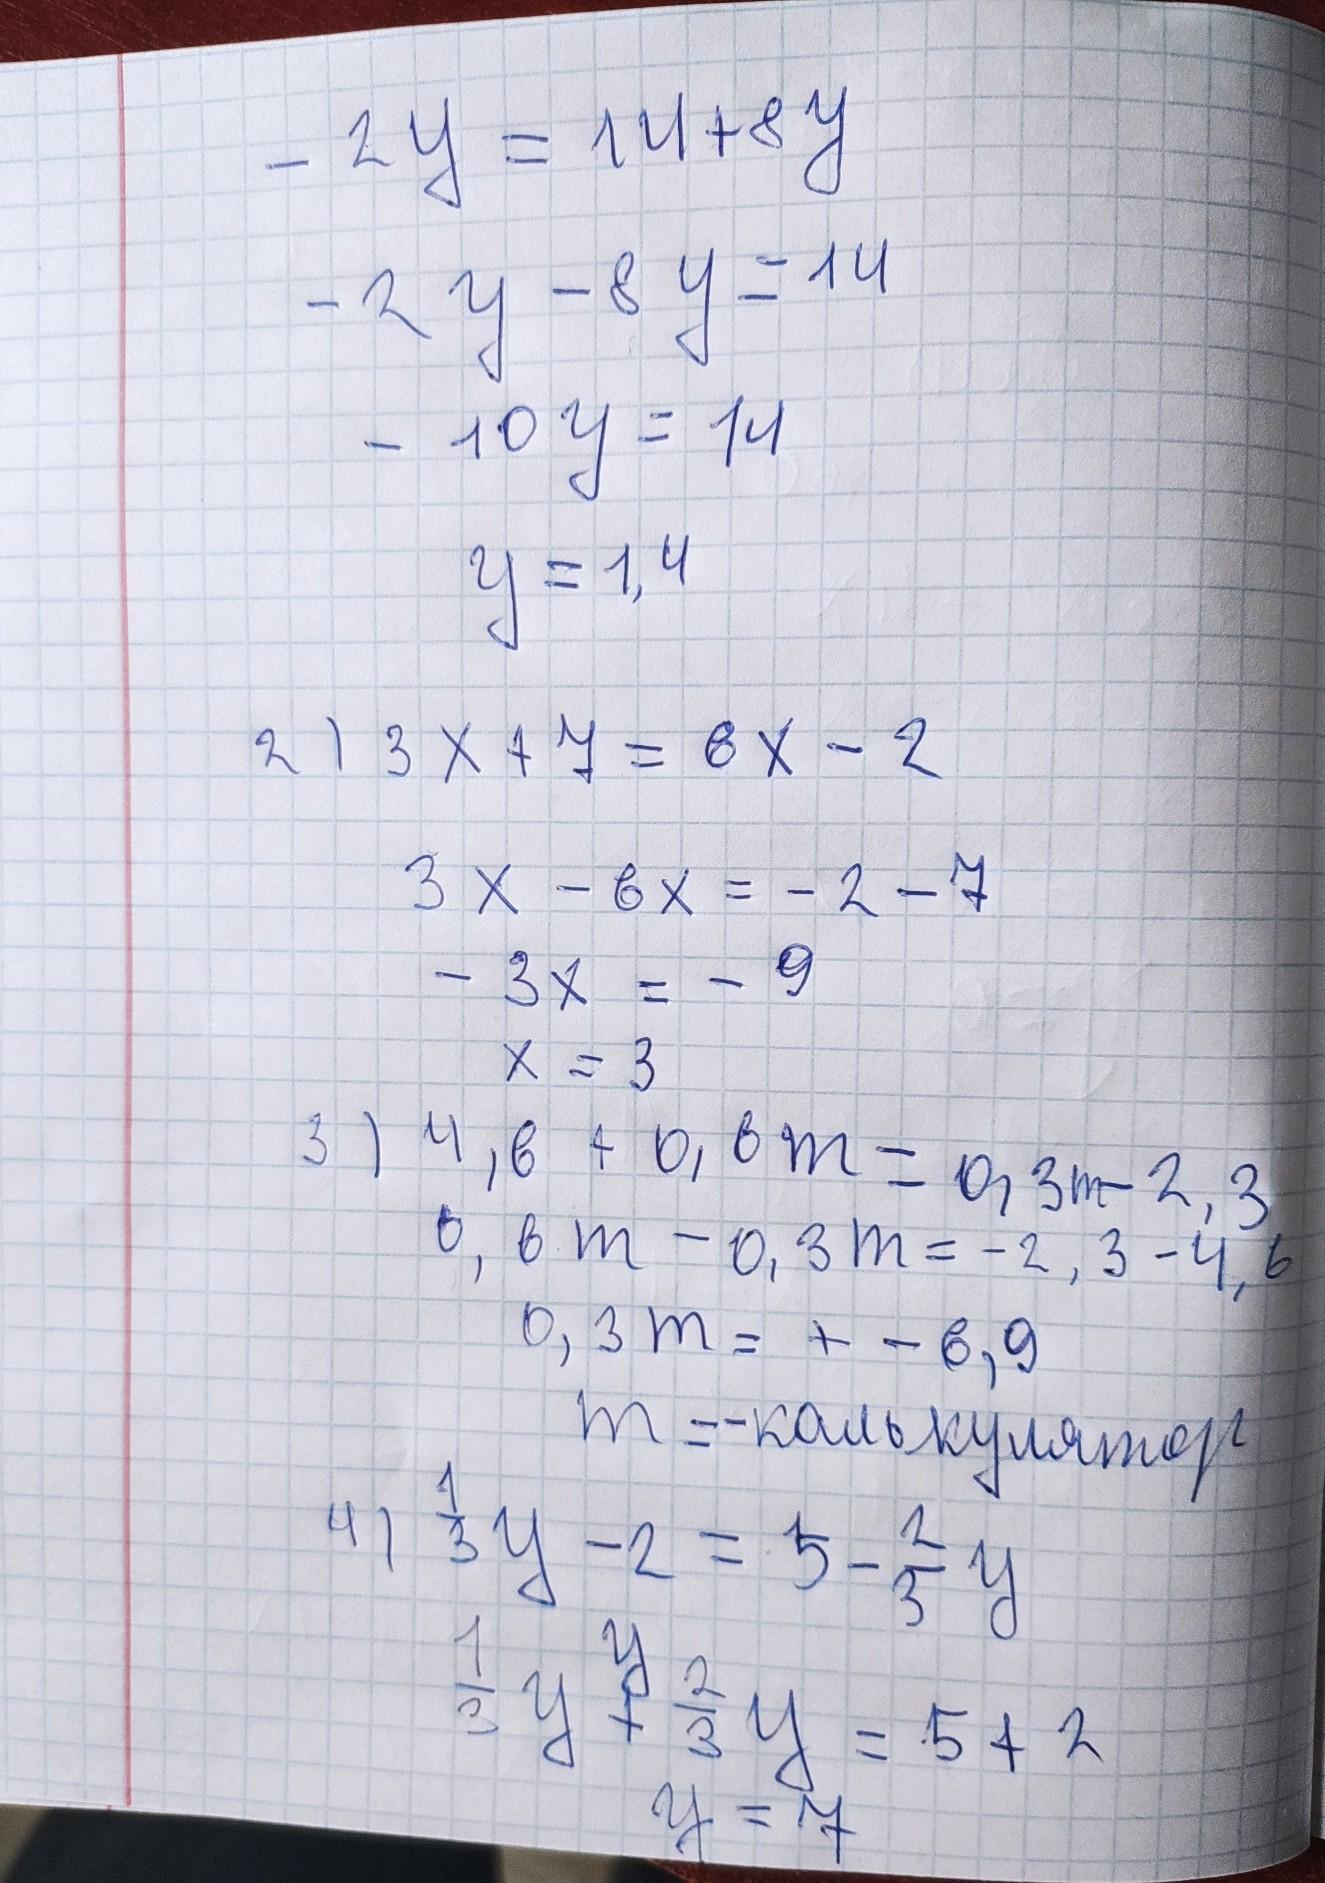 - 2y = 14+8y
- 2y - 8y = 14
- 10y = 14
y = 1,4
2) 3x + 7 = 6x - 2
3x - 6x = - 2 - 7
- 3x = - 9
x = 3
3) 4,6 + 0,6m = 0,3m - 2,3
0,6m - 0,3m = - 2,3 - 4,6
0,3m = + - 6,9
m = - калькулятор
4) 1/3 y - 2 = 5 - 2/3 y
y
1/3 y + 2/3 y = 5 + 2
y = 7